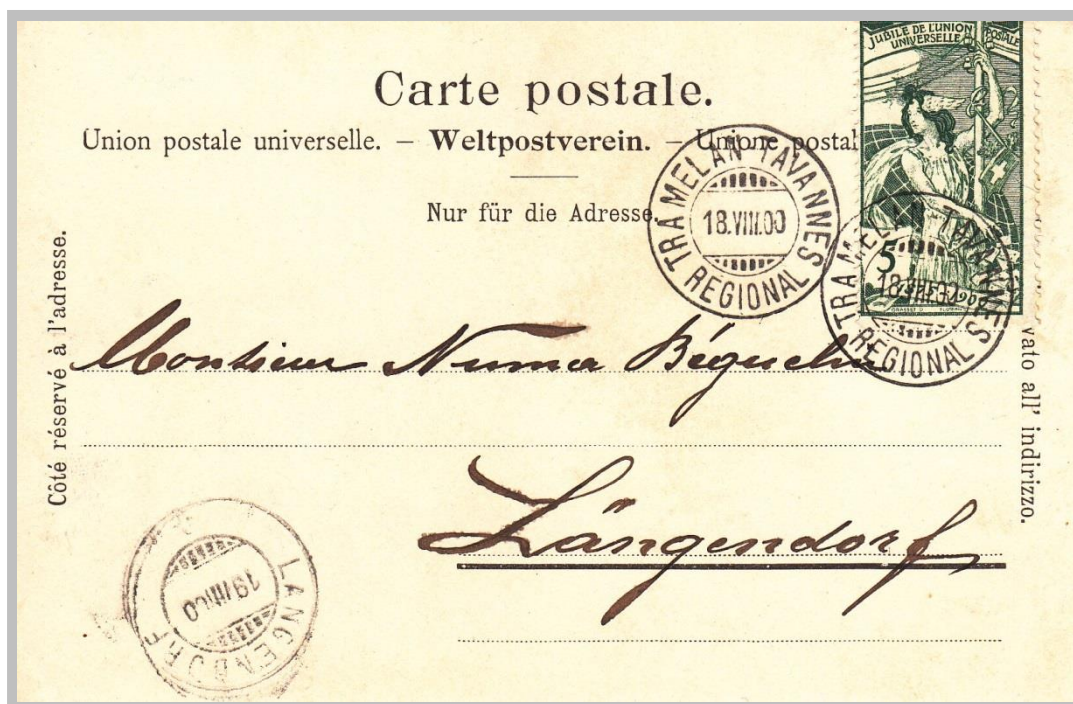 JUBILÉ DE L'UNION POSTALE
UNIVERSELLE
Carte postale.
Union postale universelle. – Weltpostverein. – Unione postal
Nur für die Adresse.
TRAMELAN-TAVANNES
18.VIII.00
REGIONAL
5
TRAMELAN-TAVANNES
18.VIII.00
REGIONAL
Côté réservé à l'adresse.
vato all' indirizzo.
Monsieur Numa Béguelin
Längendorf
LANGENDORF
19.VIII.00